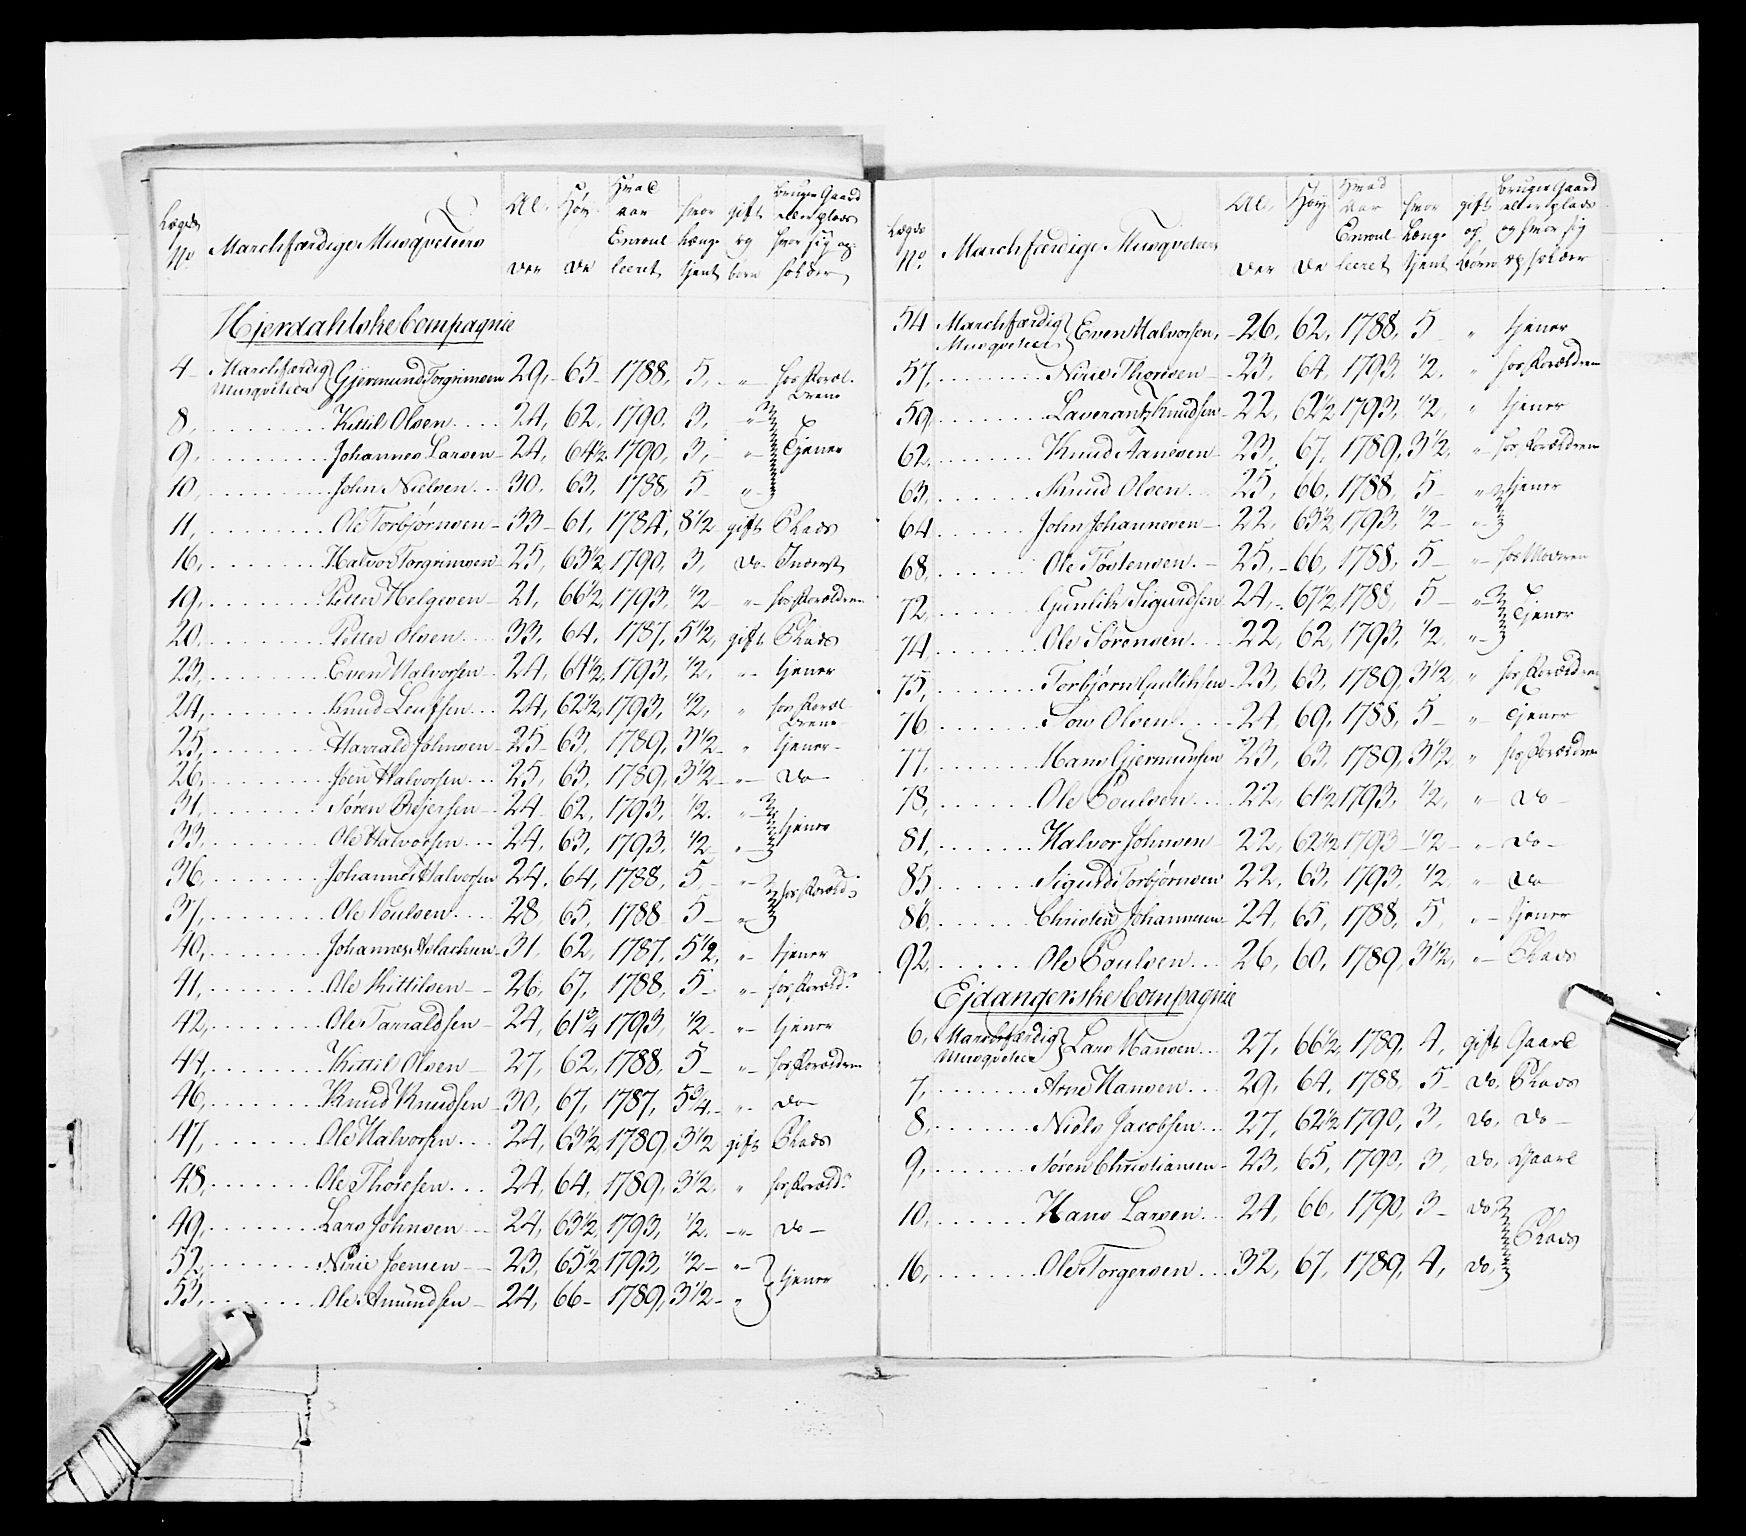 Lægds No Marchfærdige Musqveteers Al- der Høy- de Hvad aar Enroul- leeret hvor længe tjent gift og børn bruger Gaard eller plads hvor sig op- holder
Hjerdahlske Compagnie
4 Marchfærdig Musqvetier Gjermund Torgrimsen 29, 65 1788, 5, " hos Foræl- drene
8, Kittil Olsen 24, 62, 1790, 3, "
9, Johannes Larsen 24, 64½ 1790, 3, " Tjener
10, John Nielsen 30, 63, 1788, 5 "
11, Ole Torbjørnsen 33 61, 1784, 8½ gift Plads
16, Halvor Torgrimsen 25, 63½ 1790, 3, do Inderst
19, Petter Helgesen 21, 66½, 1793, ½ " hos Forældren
20, Petter Olsen 33, 64, 1787, 5½, gift Plads
23, Even Halvorsen 24, 64½, 1793, ½, " tjener
24, Knud Leufsen 24, 62½, 1793, ½, " hos Foræl- drene
25, Harrald Johnsen 25 63, 1789, 3½ " tjener
26, Joen Halvorsen 25, 63, 1789, 3½ " do
31, Søren Bejersen 24 62, 1793, ½. "
33, Ole Halvorsen 24, 63, 1793, ½ " tjener
36, Johannes Halvorsen 24, 64, 1788, 5 "
37, Ole Poulsen 28 65, 1788 5 " hos Foræld:
40, Johannes Aslachsen 31, 62, 1787, 5½, " tjener
41, Ole Kittilsen 26, 67, 1788, 5 " hos Foræld:
42, Ole Tarraldsen 24, 61¾ 1793, ½ " tjener
44, Kittil Olsen 27, 62, 1788, 5 " hos Forældren
46, Knud Knudsen 30, 67, 1787, 5¾ " do
47, Ole Halvorsen 24, 63½, 1789, 3½ gift Plads
48, Ole Thoresen 24, 64, 1789, 3½, " hos Foræld:
49, Lars Johnsen 24, 63½, 1793, ½, " do
52, Nirie Joensen 23, 65½ 1793, ½ "
53, Ole Amundsen 24, 66 1789, 3½ " tjener
Lægds No. Marchfærdige Musqveteers Al- der Høy- de Hvad aar Enroul- leeret hvor længe tjent gift og børn bruger Gaard eller plads og hvor sig opholder
54 Marchfærdig Musqvetier Even Halvorsen, 26, 62, 1788, 5 " tjener
57, Nirie Thoresen 23, 64, 1793, ½, " hos Forældren
59, Laverantz Knudsen 22, 62½ 1793, ½, " tjener
62, Knud Aanesen 23, 67, 1789, 3½, " hos Forældren
63, Knud Olsen 25, 66, 1788, 5 " tjener
64 John Johannesen 22, 63½, 1793, ½ "
68, Ole Tostensen 25, 66, 1788, 5 " hos Moderen
72, Gunlik Sigurdsen 24, 67½, 1788, 5 "
74, Ole Sørensen 22, 62, 1793, ½, " Tjener
75, Torbjørn Gunlihsen 23, 63, 1789, 3½, " hos Forældren
76 Tov Olsen 24 69, 1788, 5 " Tjener
77, Hans Gjermunsen 23, 63, 1789, 3½, " hos Forældren
78, Ole Poulsen 22, 61½ 1793, ½, " do
81, Halvor Johnsen 22, 62½ 1793 ½ " do
85 Sigurd Torbjørnsen 22, 63, 1793, ½ " do
86, Christen Johannesen 24, 65, 1788, 5, " tjener
92, Ole Poulsen 26, 60, 1789, 3½, " Plads
Ejdangerske Compagnie
6, Marchfærdig Musqvetier Lars Hansen 27, 66½, 1789, 4, gift Gaard
7, Arne Hansen 29, 64, 1788, 5 do, Plads
8, Niels Jacobsen 27, 62½ 1790, 3, do, do
9, Søren Christiansen 23, 65, 1790, 3, do, Gaard
10, Hans Larsen 24, 66, 1790, 3 do,
16, Ole Torgersen 32, 67, 1789, 4, do, Plads